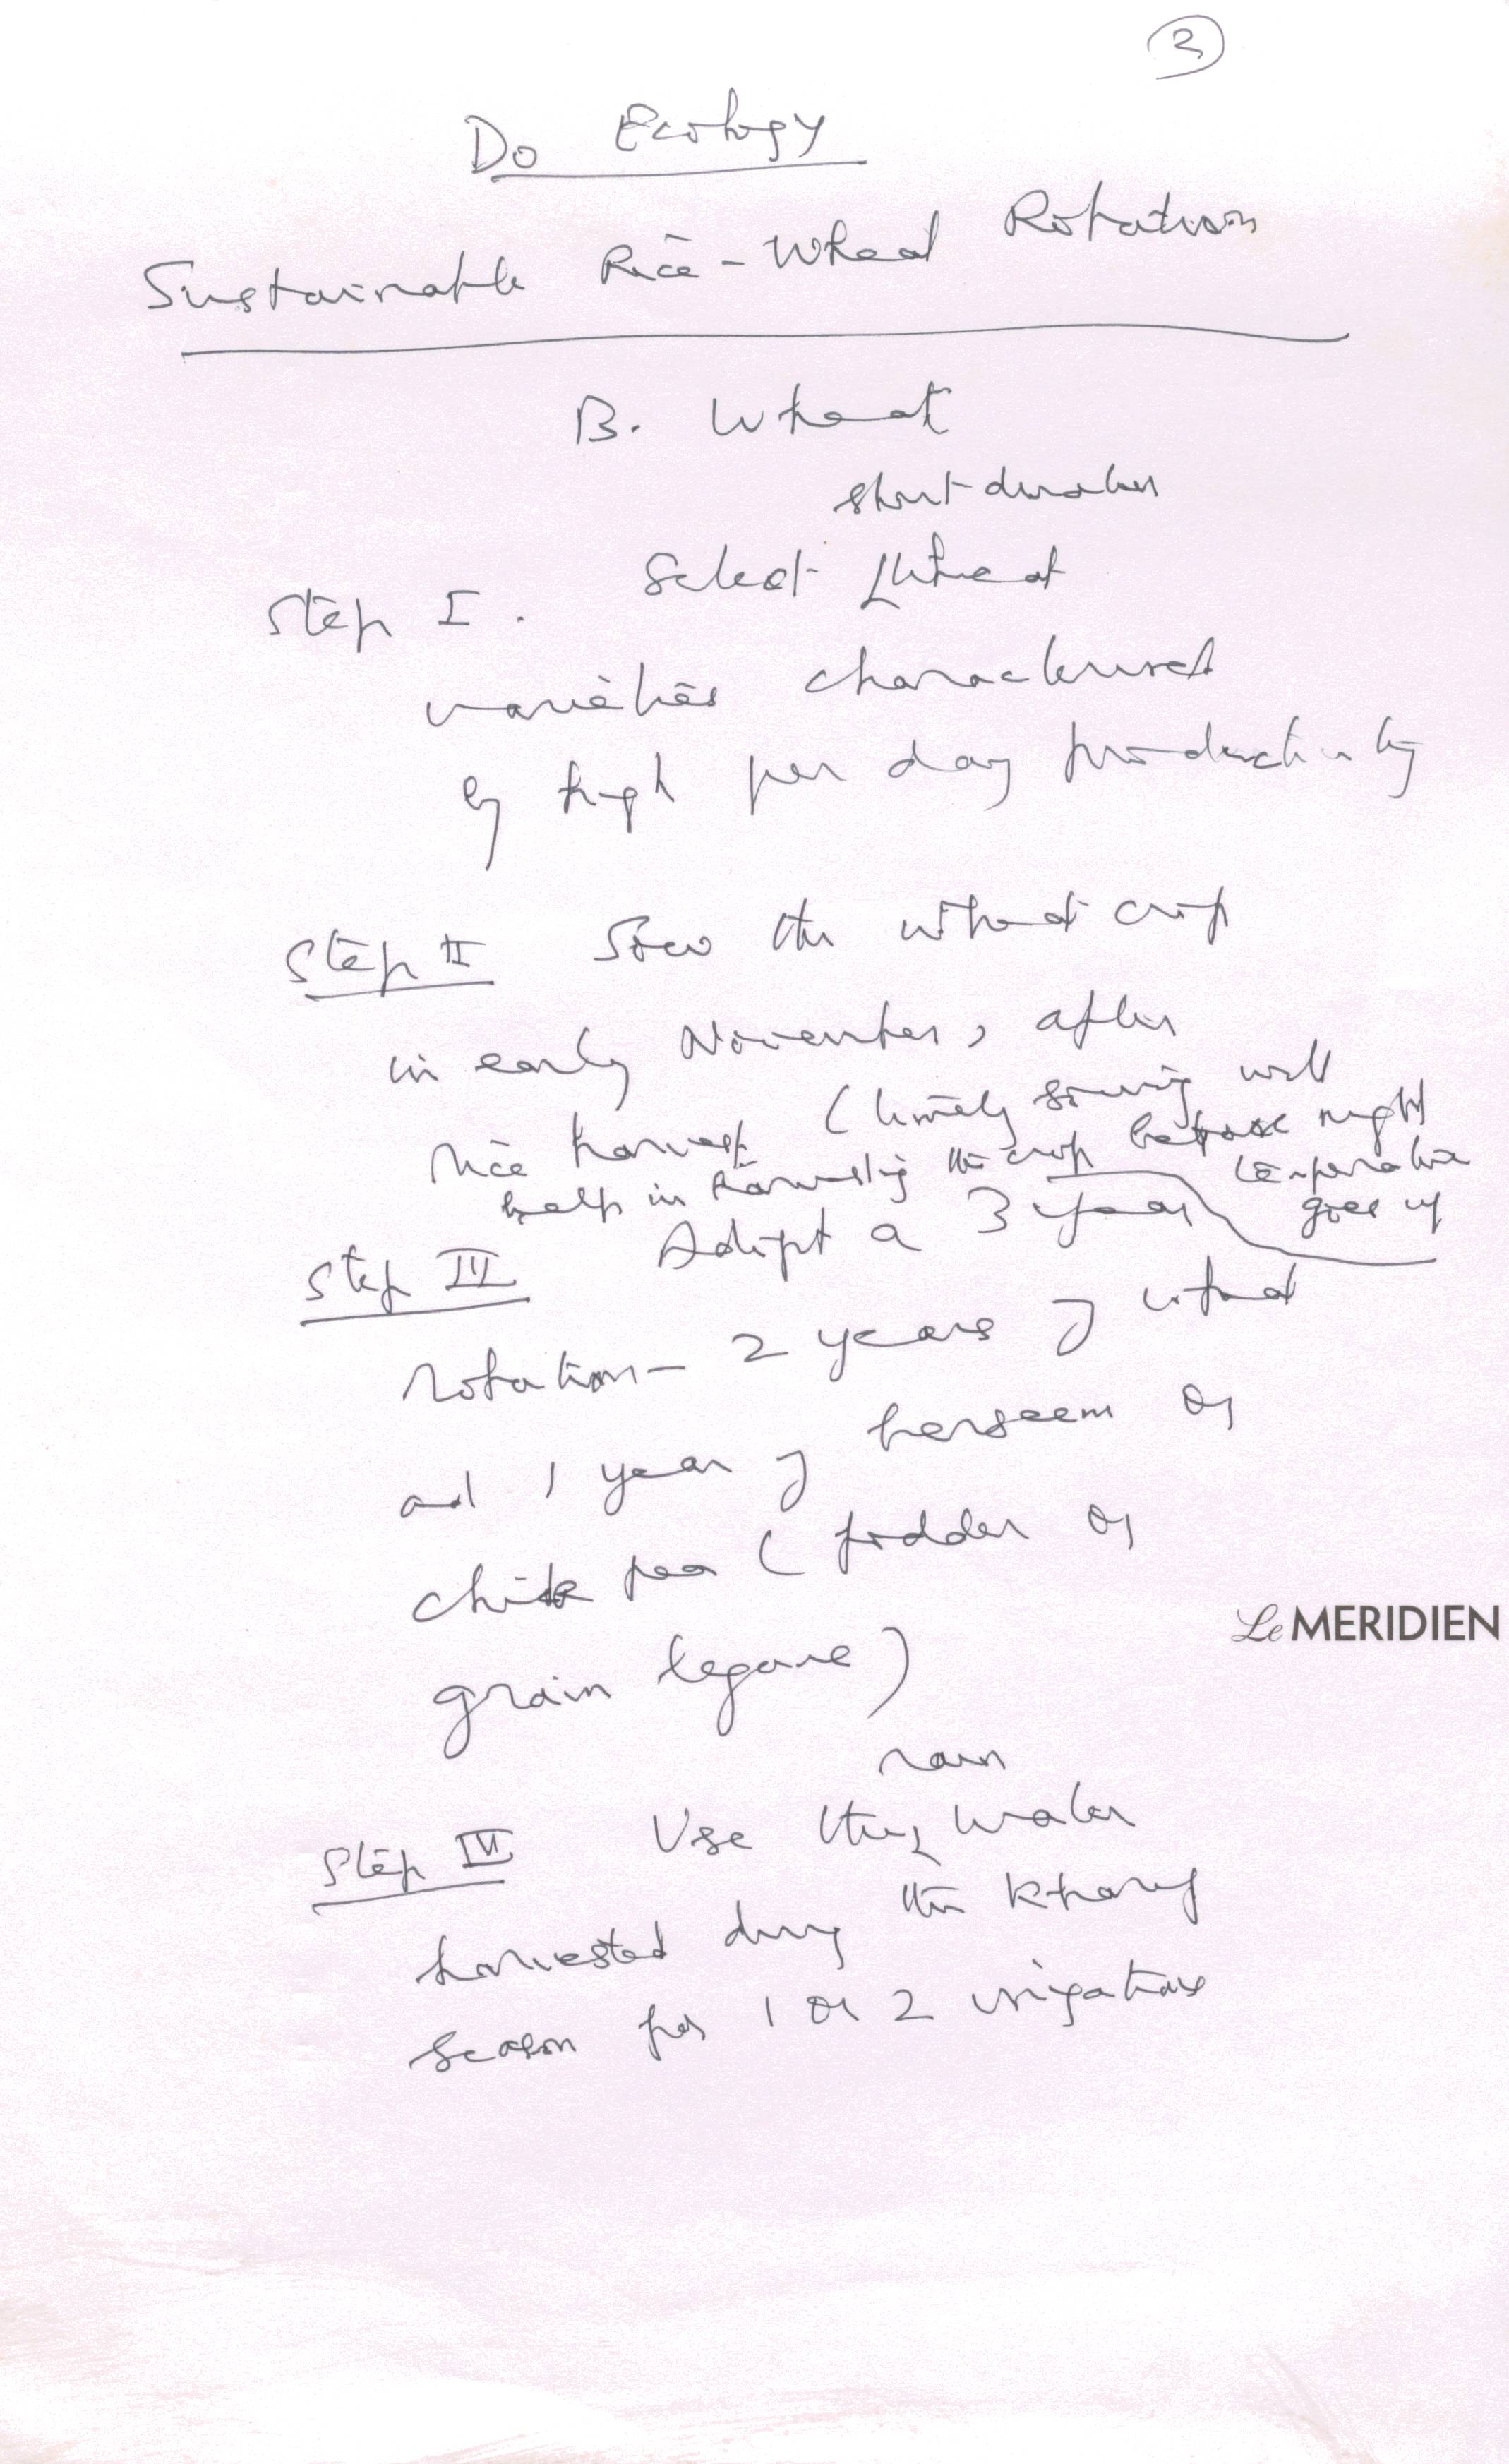 2
Do Ecology
Sustainable Rice - Wheat Rotation
B. Wheat
short-duration
Step I. Select wheat
varieties characterised
by high per day productivity
Step II Sow the wheat crop
in early November, after
rice harvest (timely sowing will
help in harvesting the crop before night
temperature
goes up
Step III Adopt a 3 year
rotation - 2 years of wheat
and 1 year of berseem or
chick pea (fodder or
grain legume)
rain
Step IV Use the water
harvested during the Kharif
season for 1 or 2 irrigations
Le MERIDIEN